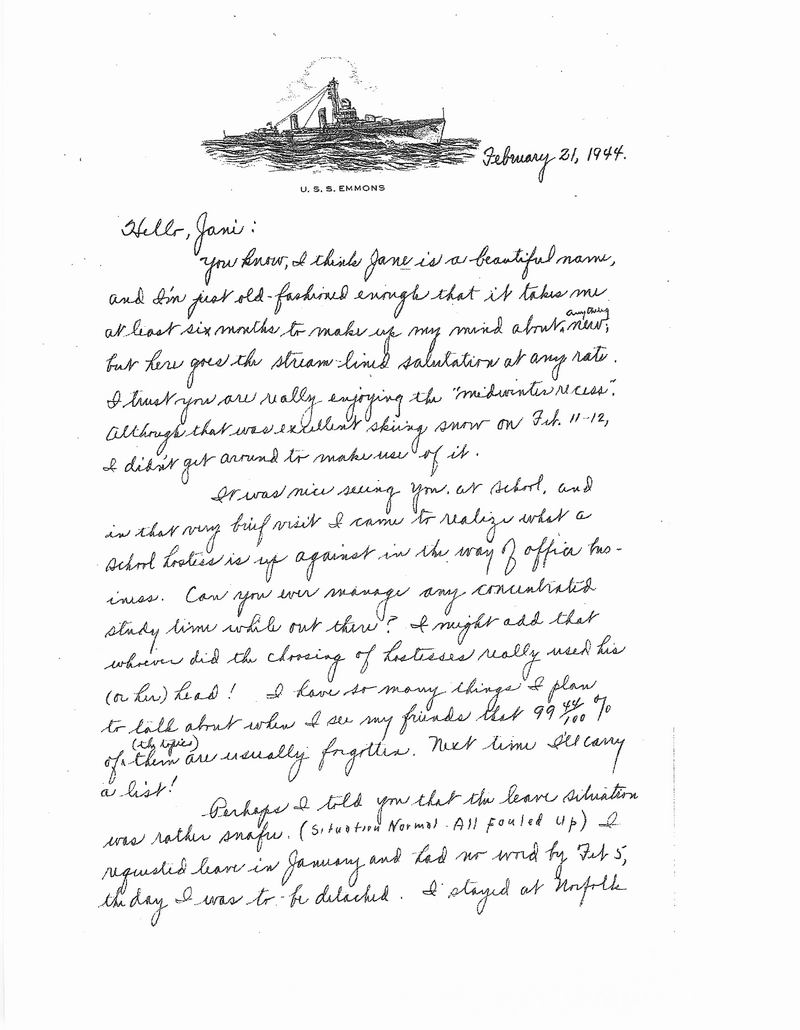 February 21, 1944.
U. S. S. EMMONS
Hello, Jani:
You know, I think Jane is a beautiful name,
and I'm just old-fashioned enough that it takes me
at least six months to make up my mind about anything new;
but here goes the stream-lined salutation at any rate.
I trust you are really enjoying the "midwinter recess".
Although that was excellent skiing snow on Feb. 11-12,
I didn't get around to make use of it.
It was nice seeing you at school, and
in that very brief visit I came to realize what a
school hostess is up against in the way of office bus-
iness. Can you ever manage any concentrated
study time while out there? I might add that
whoever did the choosing of hostesses really used his
(or her) head! I have so many things I plan
to talk about when I see my friends that 99 44/100 %
of them (the topics) are usually forgotten. Next time I'll carry
a list!
Perhaps I told you that the leave situation
was rather snafu. (Situation Normal - All Fouled Up) I
requested leave in January and had no word by Feb 5,
the day I was to be detached. I stayed at Norfolk